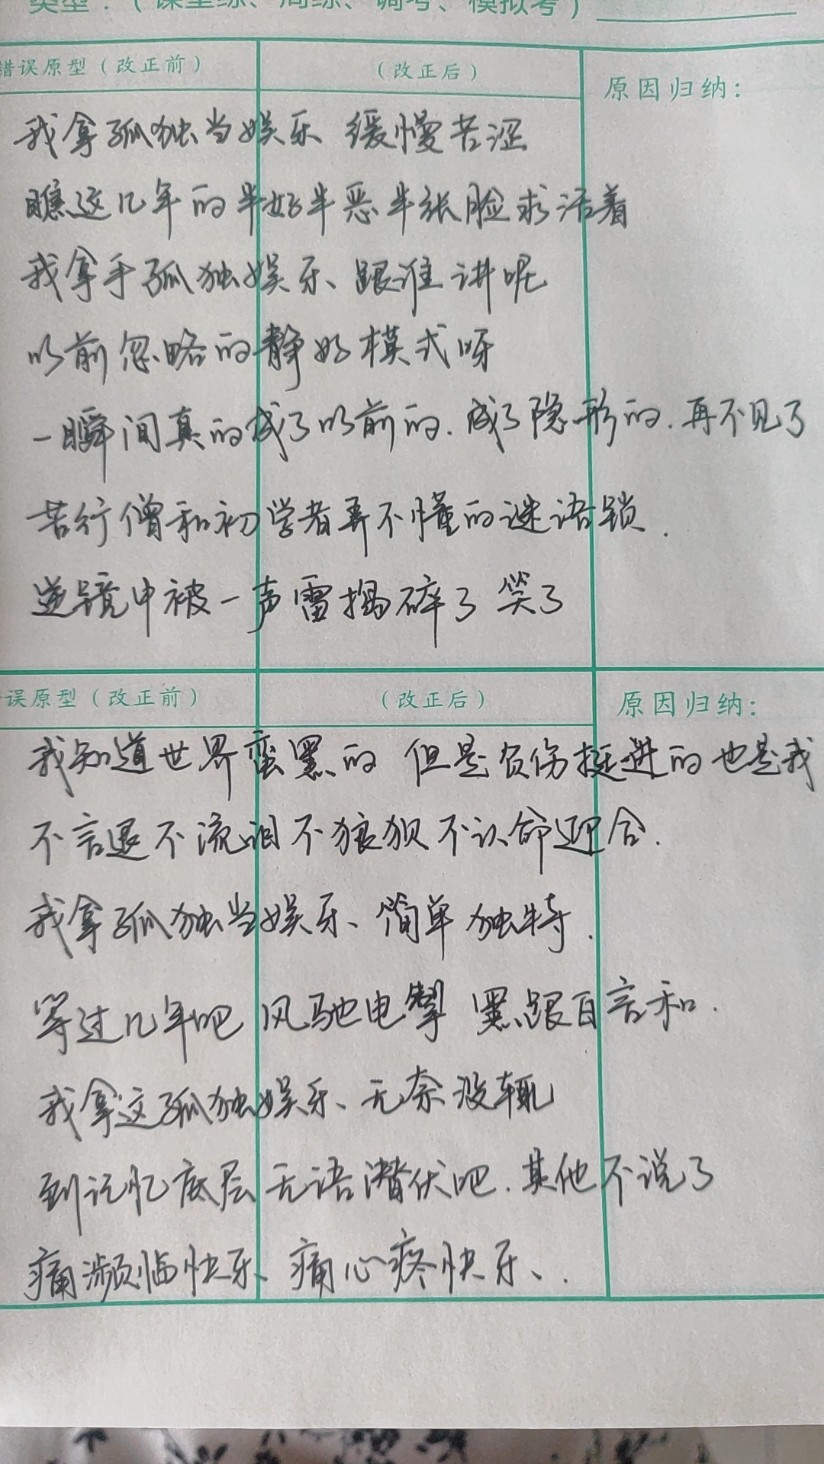 类型：（课堂练、周练、调考、模拟考）
错误原型（改正前）
（改正后）
原因归纳：
我拿孤独当娱乐 缓慢苦涩
瞧这几年的半好半恶半张脸求活着
我拿手孤独娱乐、跟谁讲呢
以前忽略的静好模式呀
一瞬间真的成了以前的.成了隐形的.再不见了
苦行僧和初学者弄不懂的谜语锁.
逆境中被一声雷捣碎了 笑了
误原型（改正前）
（改正后）
原因归纳：
我知道世界蛮黑的 但是负伤挺进的也是我
不言退不流泪不狼狈不认命迎合.
我拿孤独当娱乐、简单独特.
等过几年吧 风驰电掣 黑跟白言和.
我拿这孤独娱乐、无奈没辄
到记忆底层无语潜伏吧.其他不说了
痛濒临快乐、痛心疼快乐、.